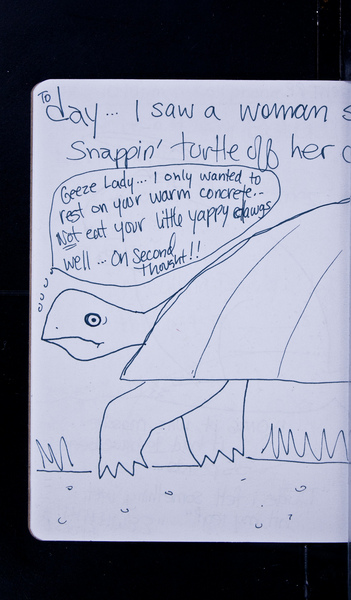 Today... I saw a woman s
Snappin' turtle off her
Geeze Lady... I only wanted to
rest on your warm concrete...
Not eat your little yappy dawgs
well... On Second
Thought!!